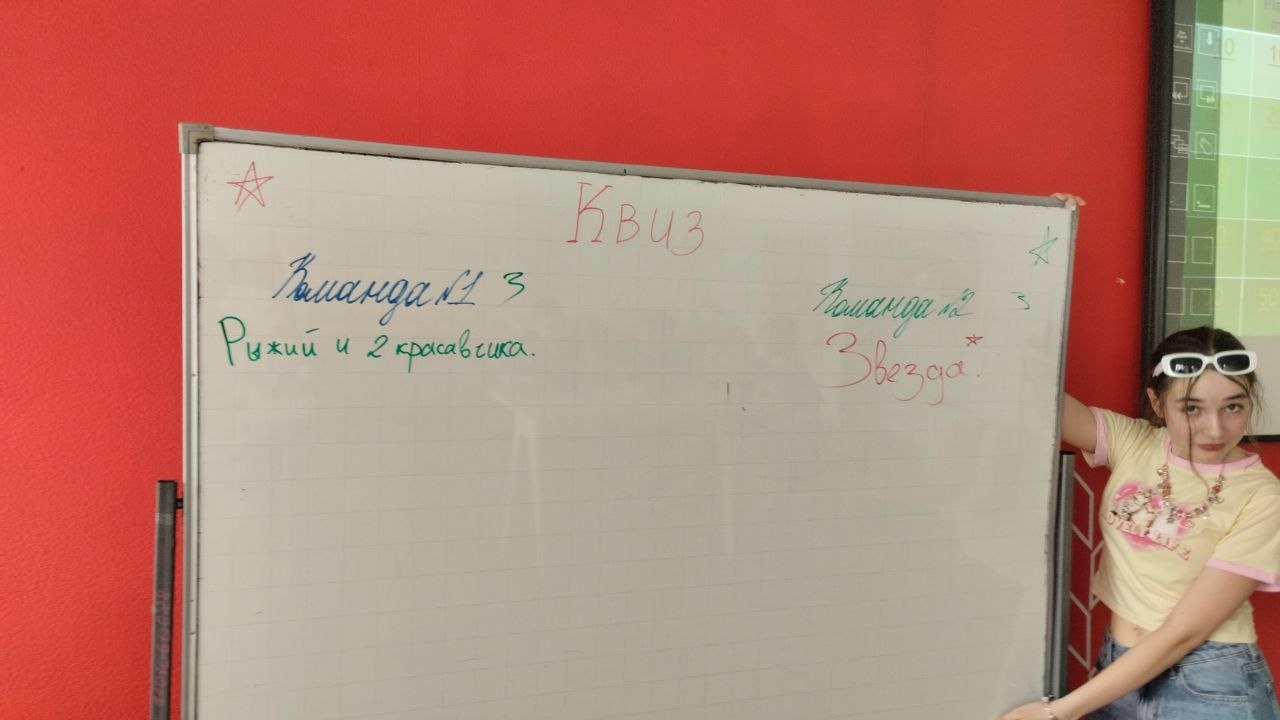 Квиз
Команда №1 3
Рыжий и 2 красавчика.
Команда №2 3
Звезда.